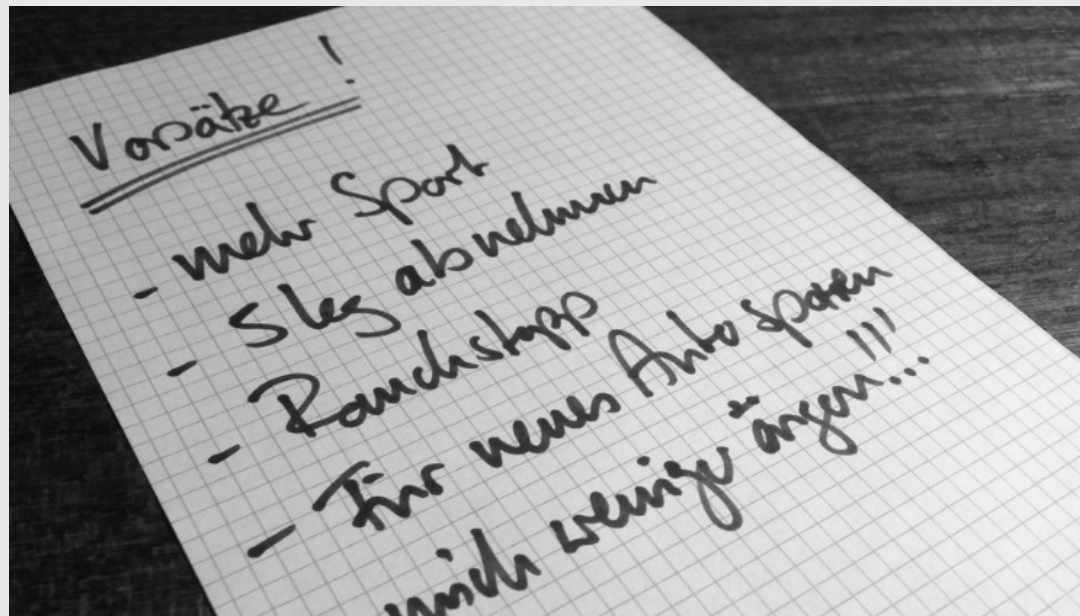 Vorsätze!
- mehr Sport
- 5 kg abnehmen
- Rauchstopp
- Für neues Auto sparen
mich weniger ärgern!!!